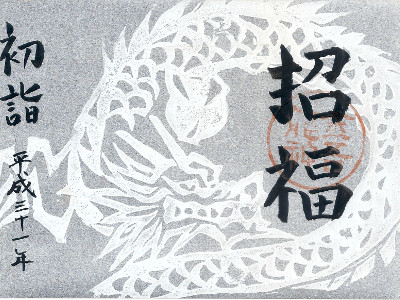 招福
初詣
平成三十一年